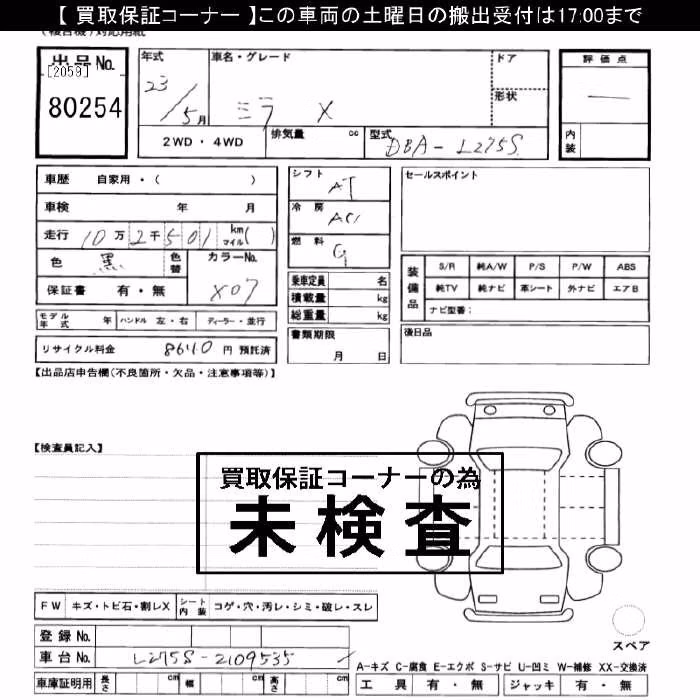 【 買取保証コーナー 】この車両の土曜日の搬出受付は17:00まで
出品No.
[2059]
80254
年式
23/5月
車名・グレード
ミラ X
ドア
形状
評価点
―
内装
2WD・4WD
排気量 cc
型式
DBA-L275S
車歴 自家用・( )
車検 年 月
走行 10万2千501 km マイル( )
色 黒 色替
カラーNo.
X07
保証書 有・無
モデル年式 年 ハンドル 左・右 ディーラー・並行
リサイクル料金 8640円 預託済
シフト AT
冷房 AC
燃料 G
乗車定員 名
積載量 kg
総重量 kg
書類期限
月 日
セールスポイント
装備品
S/R 純A/W P/S P/W ABS
純TV 純ナビ 革シート 外ナビ エアB
ナビ型番:
後日品
【出品店申告欄(不良箇所・欠品・注意事項等)】
【検査員記入】
買取保証コーナーの為
未検査
FW キズ・トビ石・割レX シート内装 コゲ・穴・汚レ・シミ・破レ・スレ
登録No.
車台No. L275S-2109535
車庫証明用 長さ cm 幅 cm 高さ cm
スペア
A-キズ C-腐食 E-エクボ S-サビ U-凹ミ W-補修 XX-交換済
工具 有・無 ジャッキ 有・無